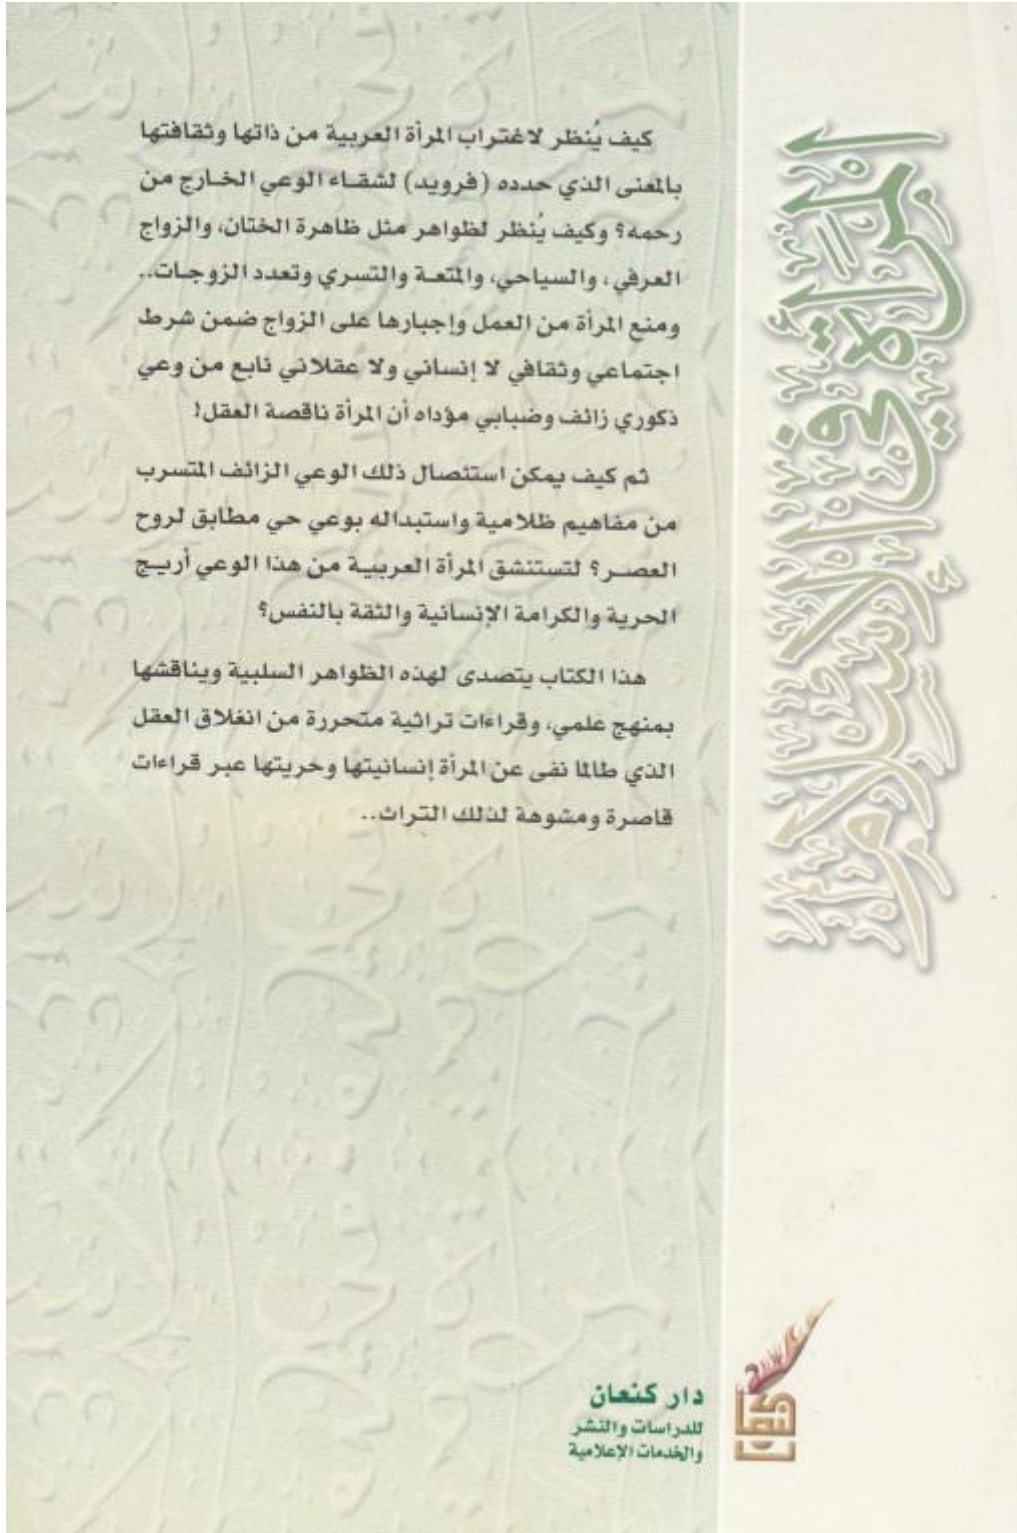 المرأة في الإسلام
كيف يُنظر لاغتراب المرأة العربية من ذاتها وثقافتها
بالمعنى الذي حدده (فرويد) لشقاء الوعي الخارج من
رحمه؟ وكيف يُنظر لظواهر مثل ظاهرة الختان، والزواج
العرفي، والسياحي، والمتعة والتسري وتعدد الزوجات..
ومنع المرأة من العمل وإجبارها على الزواج ضمن شرط
اجتماعي وثقافي لا إنساني ولا عقلاني نابع من وعي
ذكوري زائف وضبابي مؤداه أن المرأة ناقصة العقل!
ثم كيف يمكن استئصال ذلك الوعي الزائف المتسرب
من مفاهيم ظلامية واستبداله بوعي حي مطابق لروح
العصر؟ لتستنشق المرأة العربية من هذا الوعي أريج
الحرية والكرامة الإنسانية والثقة بالنفس؟
هذا الكتاب يتصدى لهذه الظواهر السلبية ويناقشها
بمنهج علمي، وقراءات تراثية متحررة من انغلاق العقل
الذي طالما نفى عن المرأة إنسانيتها وحريتها عبر قراءات
قاصرة ومشوهة لذلك التراث..
كنعان
دار كنعان
للدراسات والنشر
والخدمات الإعلامية